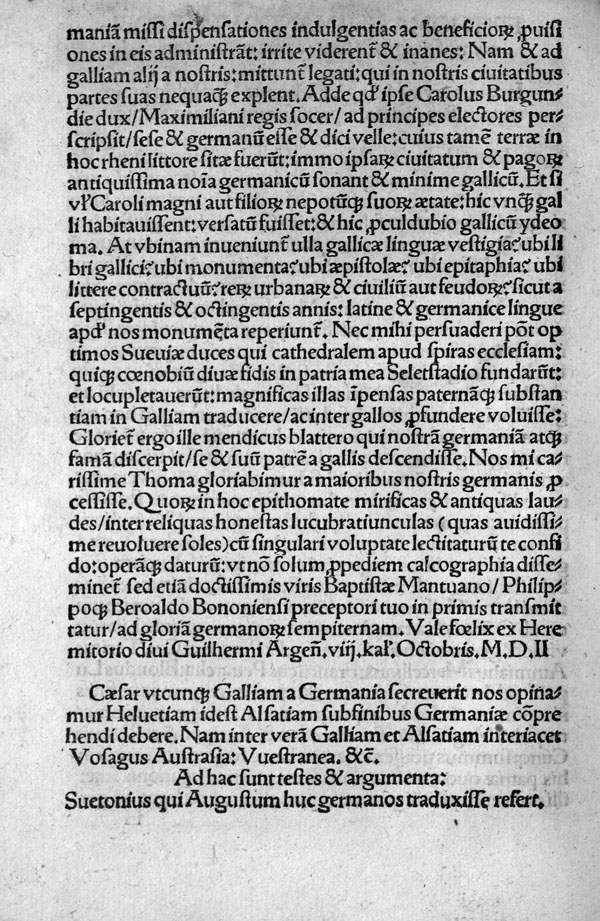 maniã missi dispensationes indulgentias ac beneficioꝝ ꝓuisi
ones in eis administrãt: irrite viderent̃ & inanes: Nam & ad
galliam alij a nostris: mittunt̃ legati: qui in nostris ciuitatibus
partes suas nequaꝗ̃ explent. Adde qd̃ ipse Carolus Burgun⸗
die dux/ Maximiliani regis socer/ ad principes electores per⸗
scripsit/ sese & germanũ esse & dici velle: cuius tamẽ terræ in
hoc rheni littore sitæ fuerũt: immo ipsaꝝ ciuitatum & pagoꝝ
antiquissima noĩa germanicũ sonant & minime gallicũ. Et si
vl̕ Caroli magni aut filioꝝ nepotũqꝫ suoꝝ ætate: hic vnqꝫ gal
li habitauissent: versatũ fuisset: & hic ꝓculdubio gallicũ ydeo
ma. At vbinam inueniunt̃ ulla gallicæ linguæ vestigia? ubi li
bri gallici? ubi monumenta? ubi æpistolæ? ubi epitaphia? ubi
littere contractuũ? reꝝ urbanaꝝ & ciuiliũ aut feudoꝝ? sicut a
septingentis & octingentis annis: latine & germanice lingue
apd̕ nos monumẽta reperiunt̃. Nec mihi persuaderi põt op
timos Sueuiæ duces qui cathedralem apud spiras ecclesiam:
quiqꝫ cœnobiũ diuæ fidis in patria mea Seletstadio fundarũt:
et locupletauerũt: magnificas illas ĩpensas paternãqꝫ substan
tiam in Galliam traducere/ ac inter gallos ꝓfundere voluisse:
Gloriet̃ ergo ille mendicus blattero qui nostrã germaniã atqꝫ
famã discerpit/ se & suũ patrẽ a gallis descendisse. Nos mi ca⸗
rissime Thoma gloriabimur a maioribus nostris germanis ꝓ
cessisse. Quoꝝ in hoc epithomate mirificas & antiquas lau⸗
des/ inter reliquas honestas lucubratiunculas (quas auidissi⸗
me reuoluere soles) cũ singulari voluptate lectitaturũ te confi
do: operãqꝫ daturũ: vt nõ solum ꝓpediem calcographia disse⸗
minet̃ sed etiã doctissimis viris Baptistæ Mantuano/ Philip⸗
poqꝫ Beroaldo Bononiensi preceptori tuo in primis transmit
tatur/ ad gloriã germanoꝝ sempiternam. Vale fœlix ex Here
mitorio diui Guilhermi Argeñ. viij. kal̕. Octobris. M. D. II
Cæsar vtcunqꝫ Galliam a Germania secreuerit nos opina⸗
mur Heluetiam idest Alsatiam sub finibus Germaniæ cõpre
hendi debere. Nam inter verã Galliam et Alsatiam interiacet
Vosagus Austrasia: Vuestranea. &c̃.
Ad hac sunt testes & argumenta:
Suetonius qui Augustum huc germanos traduxisse refert.